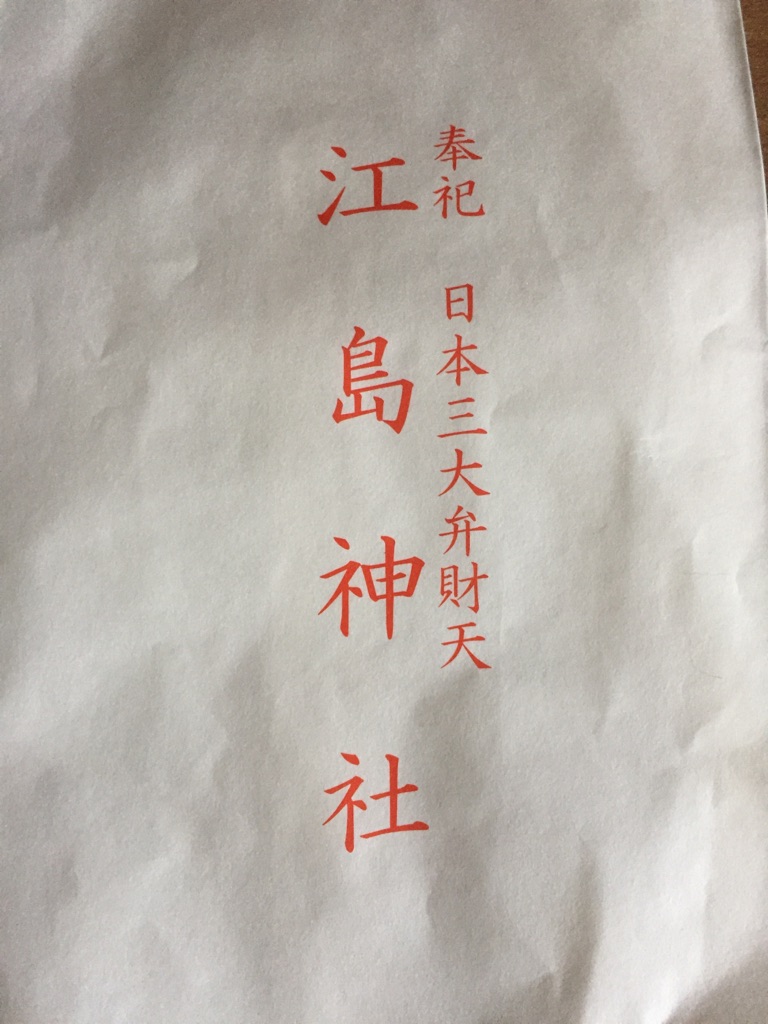 奉祀 日本三大弁財天
江島神社